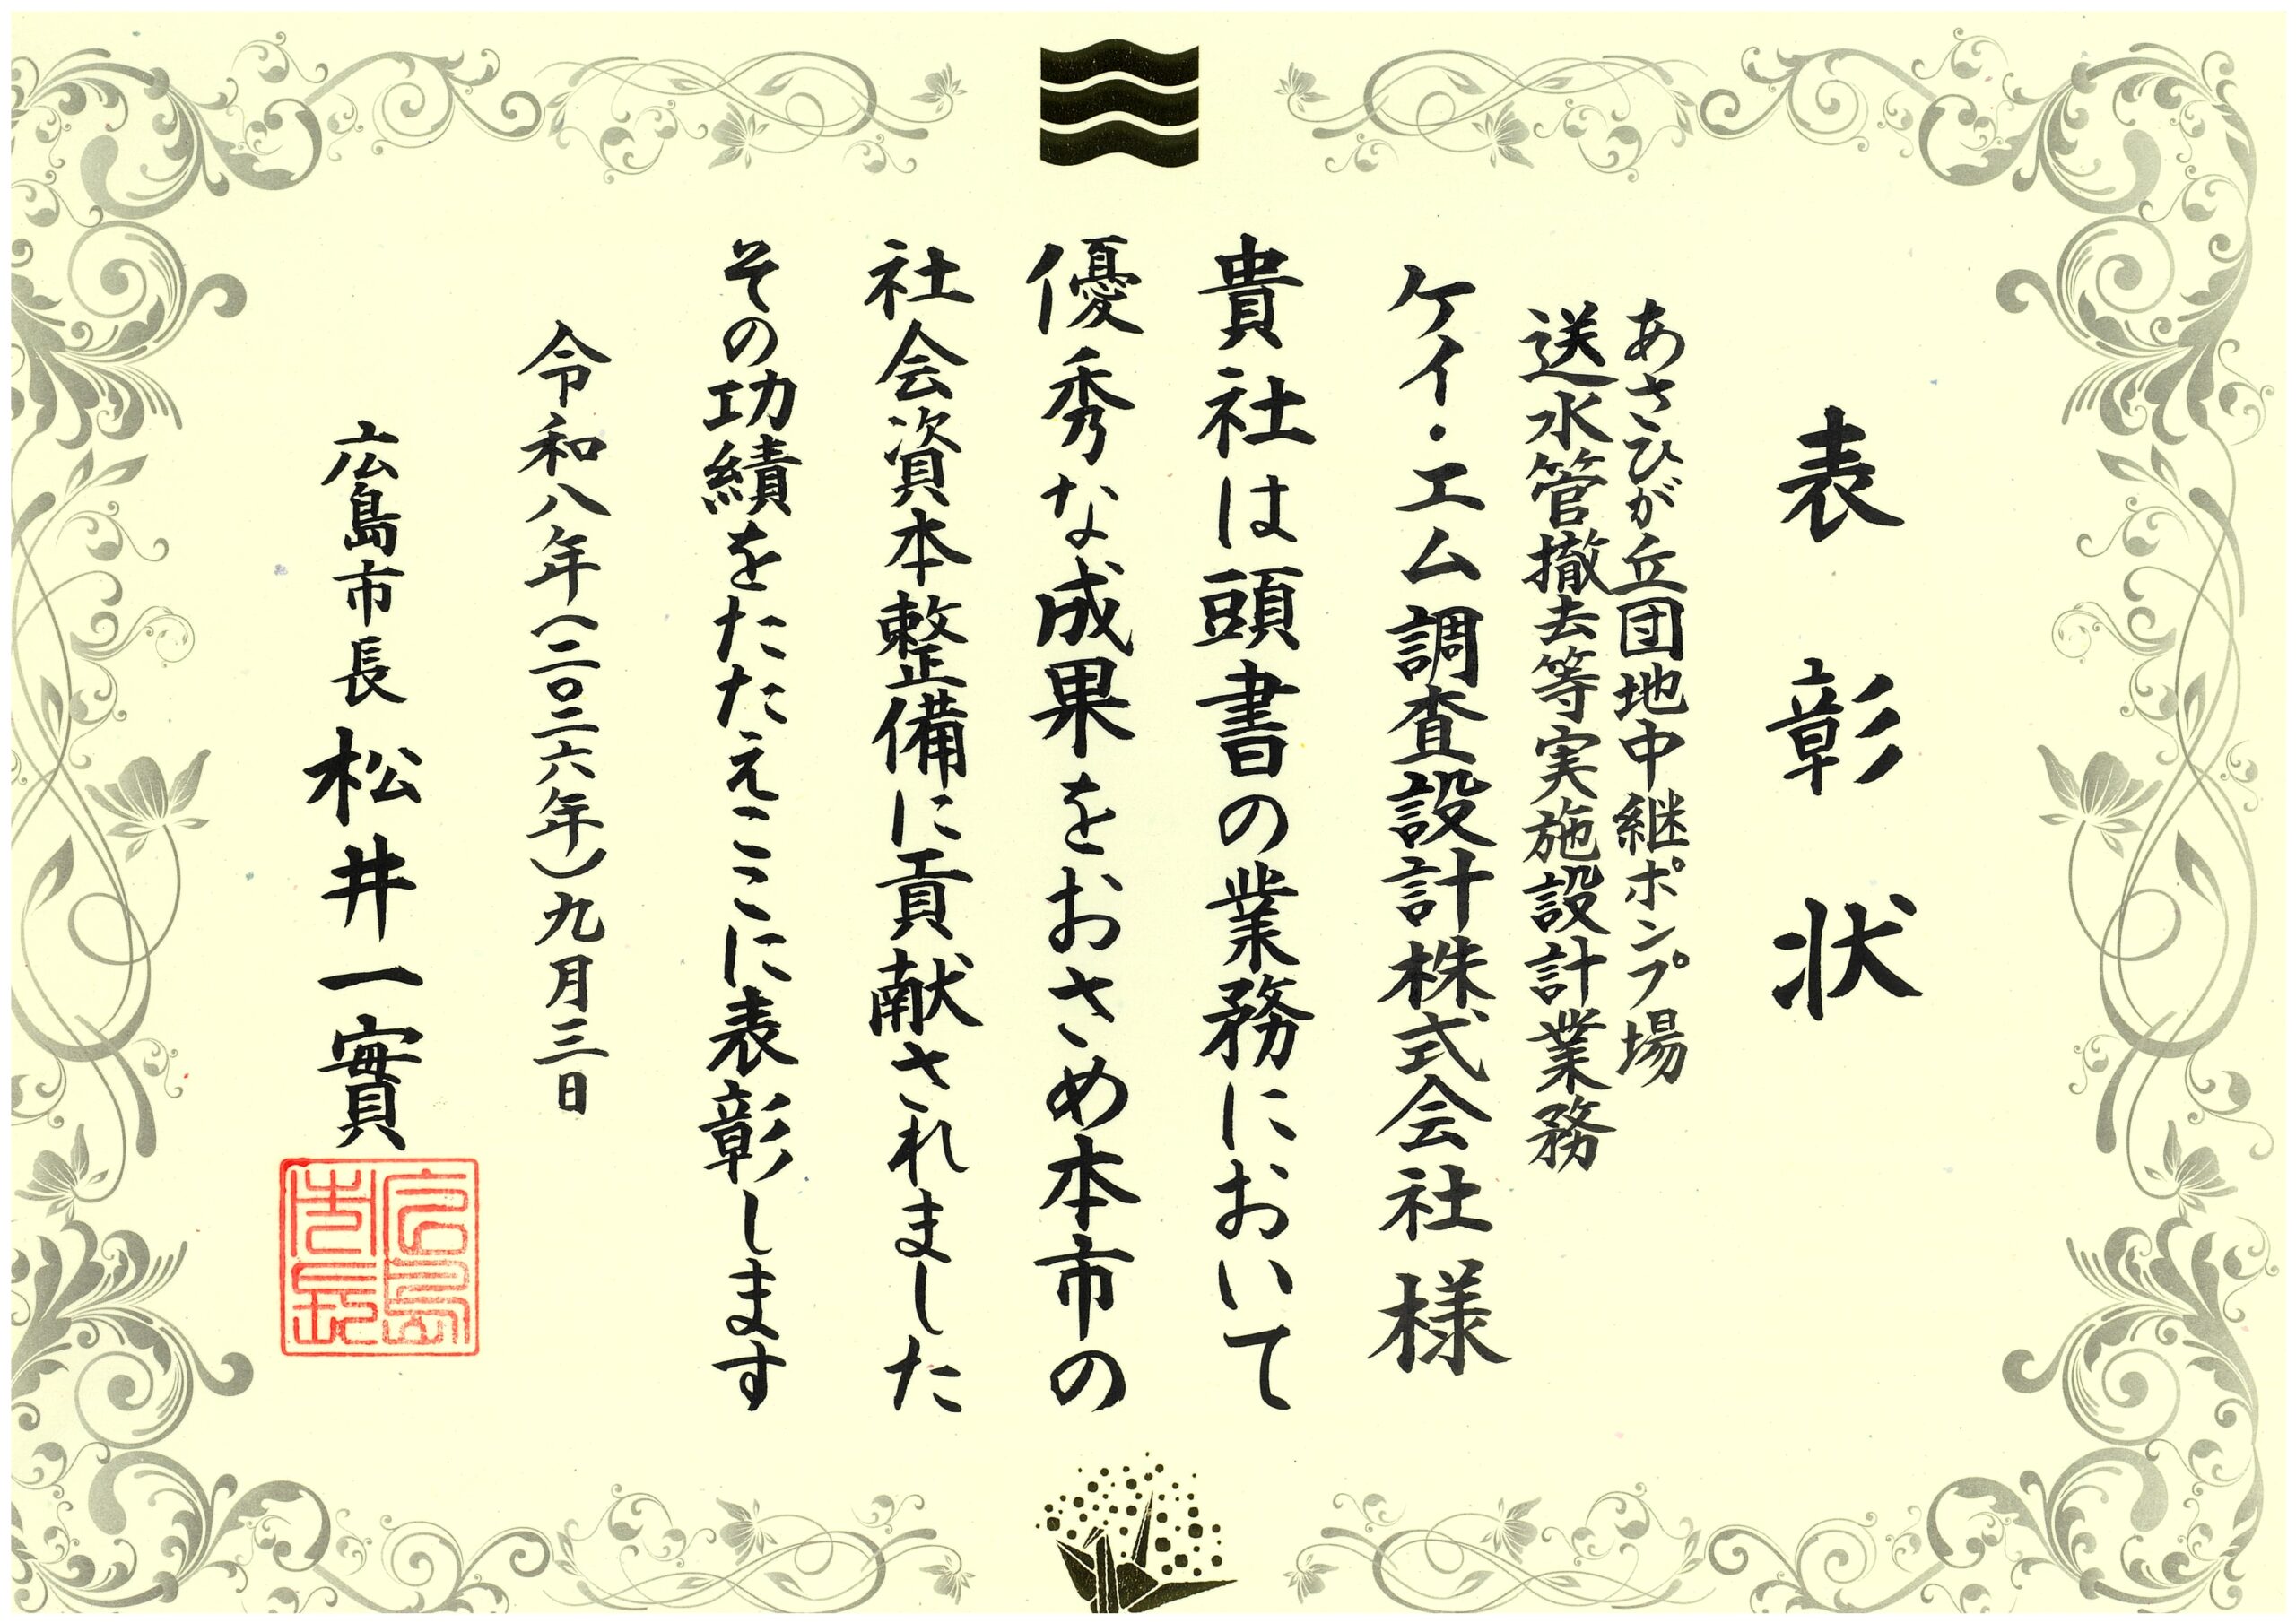 表彰状
あさひが丘団地中継ポンプ場
送水管撤去等実施設計業務
ケイ・エム調査設計株式会社 様
貴社は頭書の業務において
優秀な成果をおさめ本市の
社会資本整備に貢献されました
その功績をたたえここに表彰します
令和八年(二〇二六年)九月三日
広島市長 松井一實
広島
市長